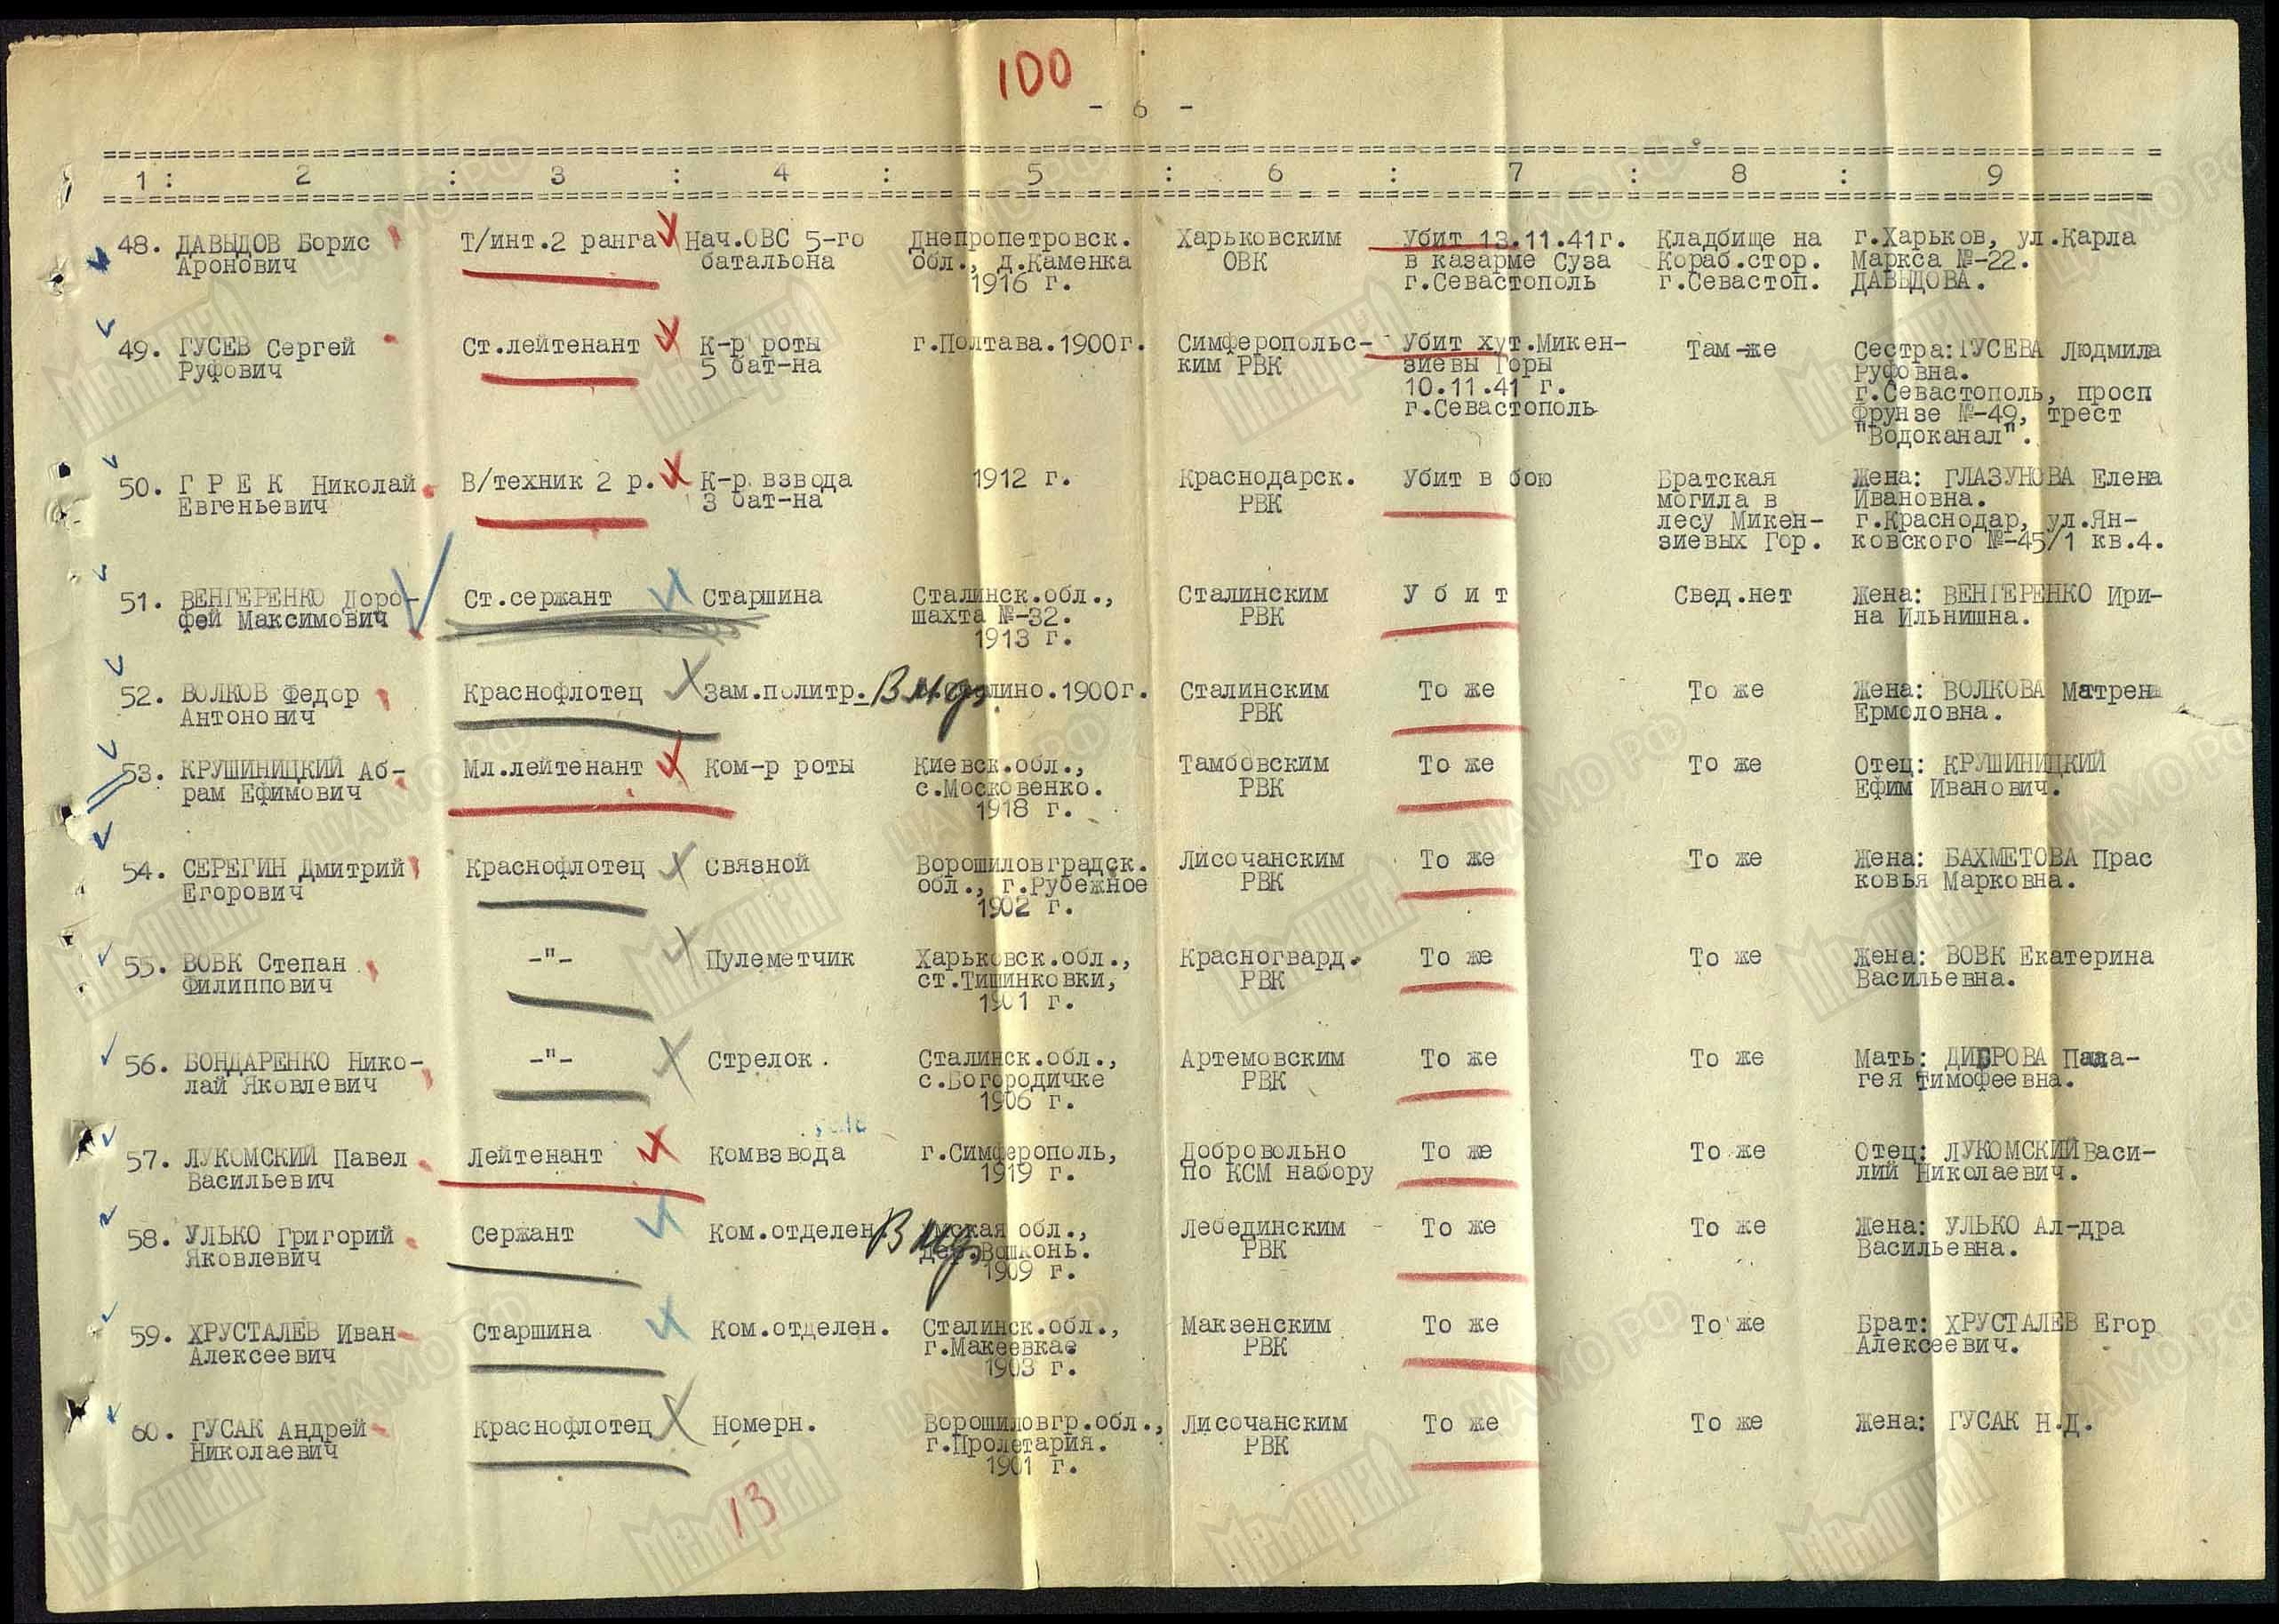 100
- 6 -
1 : 2 : 3 : 4 : 5 : 6 : 7 : 8 : 9
48. ДАВЫДОВ Борис Т/инт.2 ранга Нач.ОВС 5-го Днепропетровск. Харьковским Убит 13.11.41г. Кладбище на г.Харьков, ул.Карла
Аронович батальона обл., д.Каменка ОВК в казарме Суза Кораб.стор. Маркса №-22.
1916 г. г.Севастополь г.Севастоп. ДАВЫДОВА.
49. ГУСЕВ Сергей Ст.лейтенант К-р роты г.Полтава.1900г. Симферопольс- Убит хут.Микен- Там-же Сестра: ГУСЕВА Людмила
Руфович 5 бат-на ким РВК зиевы Горы Руфовна.
10.11.41 г. г.Севастополь, просп
г.Севастополь Фрунзе №-49, трест
"Водоканал".
50. Г Р Е К Николай В/техник 2 р. К-р взвода 1912 г. Краснодарск. Убит в бою Братская Жена: ГЛАЗУНОВА Елена
Евгеньевич 3 бат-на РВК могила в Ивановна.
лесу Микен- г.Краснодар, ул.Ян-
зиевых Гор. ковского №-45/1 кв.4.
51. ВЕНГЕРЕНКО Доро- Ст.сержант Старшина Сталинск.обл., Сталинским У б и т Свед.нет Жена: ВЕНГЕРЕНКО Ири-
фей Максимович шахта №-32. РВК на Ильнишна.
1913 г.
52. ВОЛКОВ Федор Краснофлотец Зам.политр. 1900г. Сталинским То же То же Жена: ВОЛКОВА Матрена
Антонович РВК Ермоловна.
53. КРУШИНИЦКИЙ Аб- Мл.лейтенант Ком-р роты Киевск.обл., Тамбовским То же То же Отец: КРУШИНИЦКИЙ
рам Ефимович с.Московенко. РВК Ефим Иванович.
1918 г.
54. СЕРЕГИН Дмитрий Краснофлотец Связной Ворошиловградск. Лисочанским То же То же Жена: БАХМЕТОВА Прас
Егорович обл., г.Рубежное РВК ковья Марковна.
1902 г.
55. ВОВК Степан -"- Пулеметчик Харьковск.обл., Красногвард. То же То же Жена: ВОВК Екатерина
Филиппович ст.Тишинковки, РВК Васильевна.
1901 г.
56. БОНДАРЕНКО Нико- -"- Стрелок. Сталинск.обл., Артемовским То же То же Мать:
лай Яковлевич с.Богородичке РВК гея Тимофеевна.
1906 г.
57. ЛУКОМСКИЙ Павел Лейтенант Комвзвода г.Симферополь, Добровольно То же То же Отец: ЛУКОМСКИЙ Васи-
Васильевич 1919 г. по КСМ набору лий Николаевич.
58. УЛЬКО Григорий Сержант Ком.отделен обл., Лебединским То же То же Жена: УЛЬКО Ал-дра
Яковлевич РВК Васильевна.
1909 г.
59. ХРУСТАЛЕВ Иван Старшина Ком.отделен. Сталинск.обл., Макзенским То же То же Брат: ХРУСТАЛЕВ Егор
Алексеевич г.Макеевкае РВК Алексеевич.
1903 г.
60. ГУСАК Андрей Краснофлотец Номерн. Ворошиловгр.обл., Лисочанским То же То же Жена: ГУСАК Н.Д.
Николаевич г.Пролетария. РВК
1901 г.
13